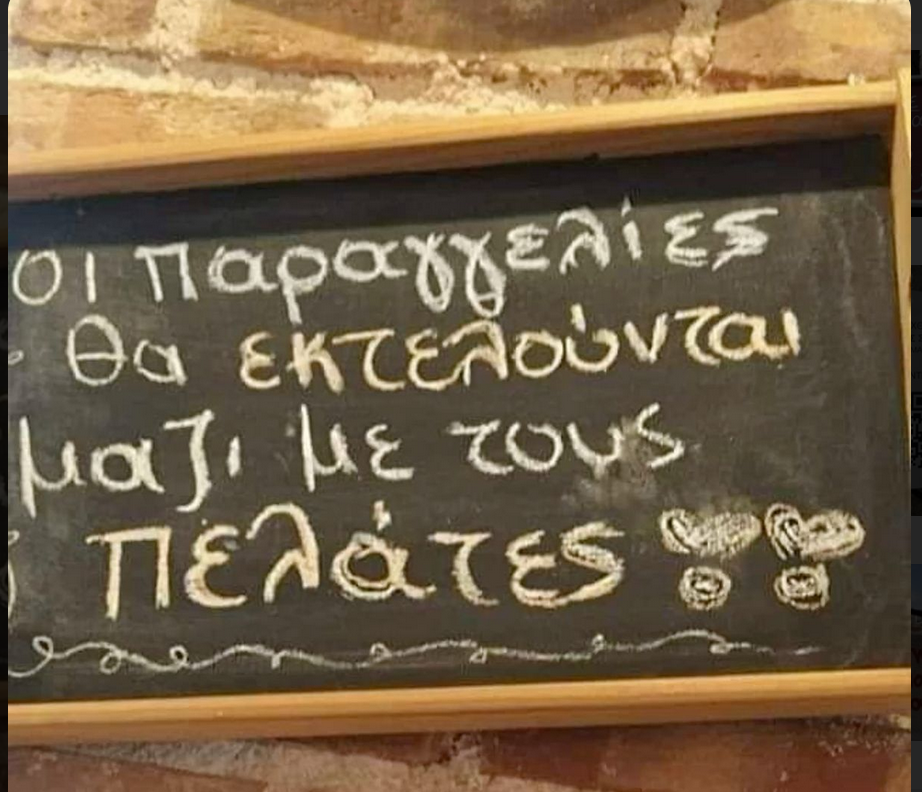 Οι Παραγγελίες
θα εκτελούνται
μαζι με τους
Πελάτες !!